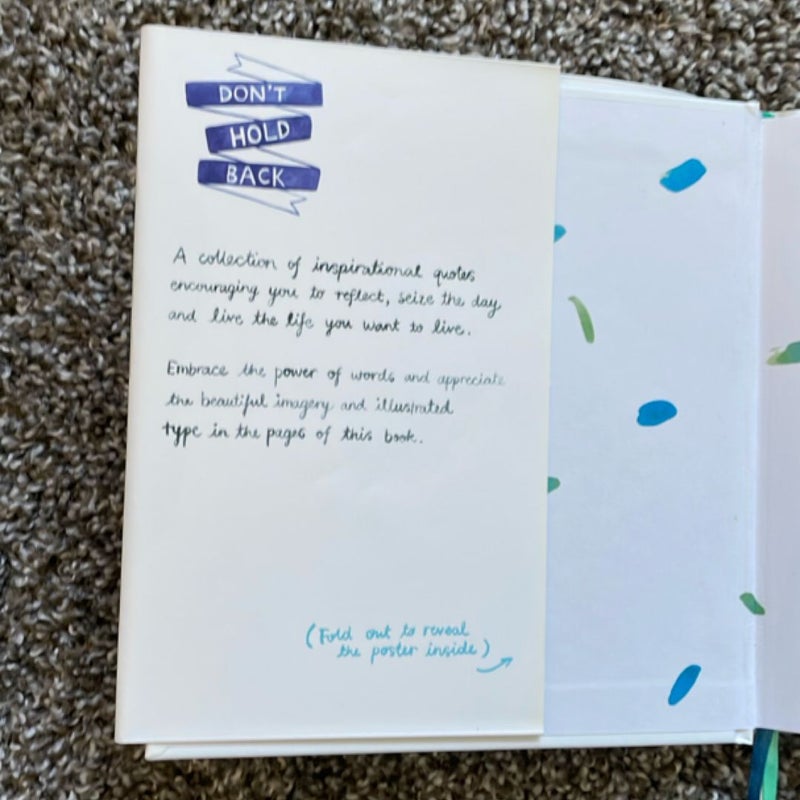 DON'T
HOLD
BACK
A collection of inspirational quotes
encouraging you to reflect, seize the day
and live the life you want to live.
Embrace the power of words and appreciate
the beautiful imagery and illustrated
type in the pages of this book.
(Fold out to reveal
the poster inside)